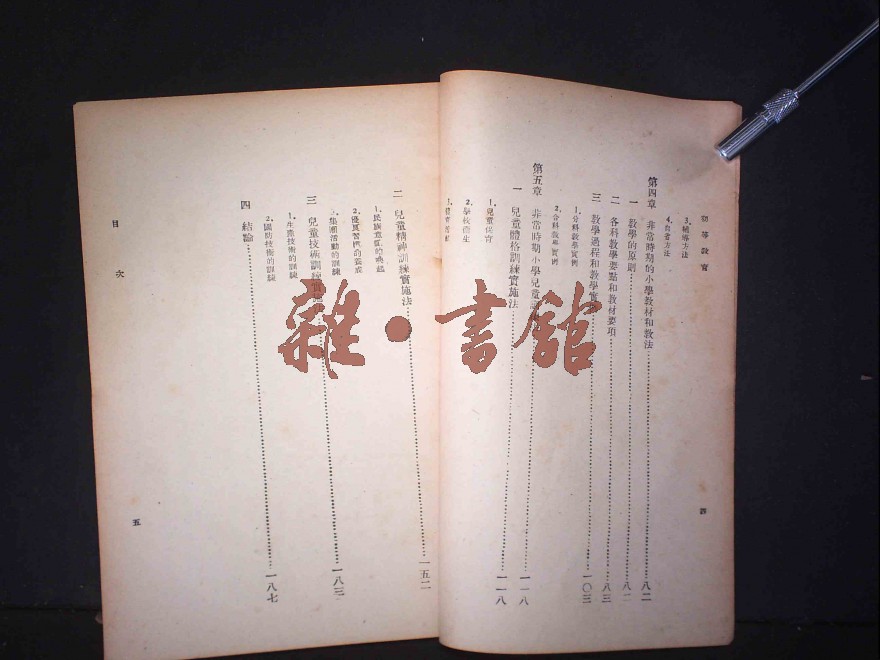 初等教育
3、輔導方法
4、自省方法
第四章 非常時期的小學教材和教法……八二
一 教學的原則……八二
二 各科教學要點和教材要項……八三
三 教學過程和教學實……一〇三
1、分科教學實例
2、分科教學實例
第五章 非常時期小學兒童訓……一一八
一 兒童體格訓練實施法……一一八
1、兒童保育
2、學校衛生
四
二 兒童精神訓練實施法……一五二
1、民族意識的喚起
2、優良習慣的養成
3、集團活動的訓練
三 兒童技術訓練實……一八三
1、生產技術的訓練
2、國防技術的訓練
四 結論……一八七
目次
五
雜·書館